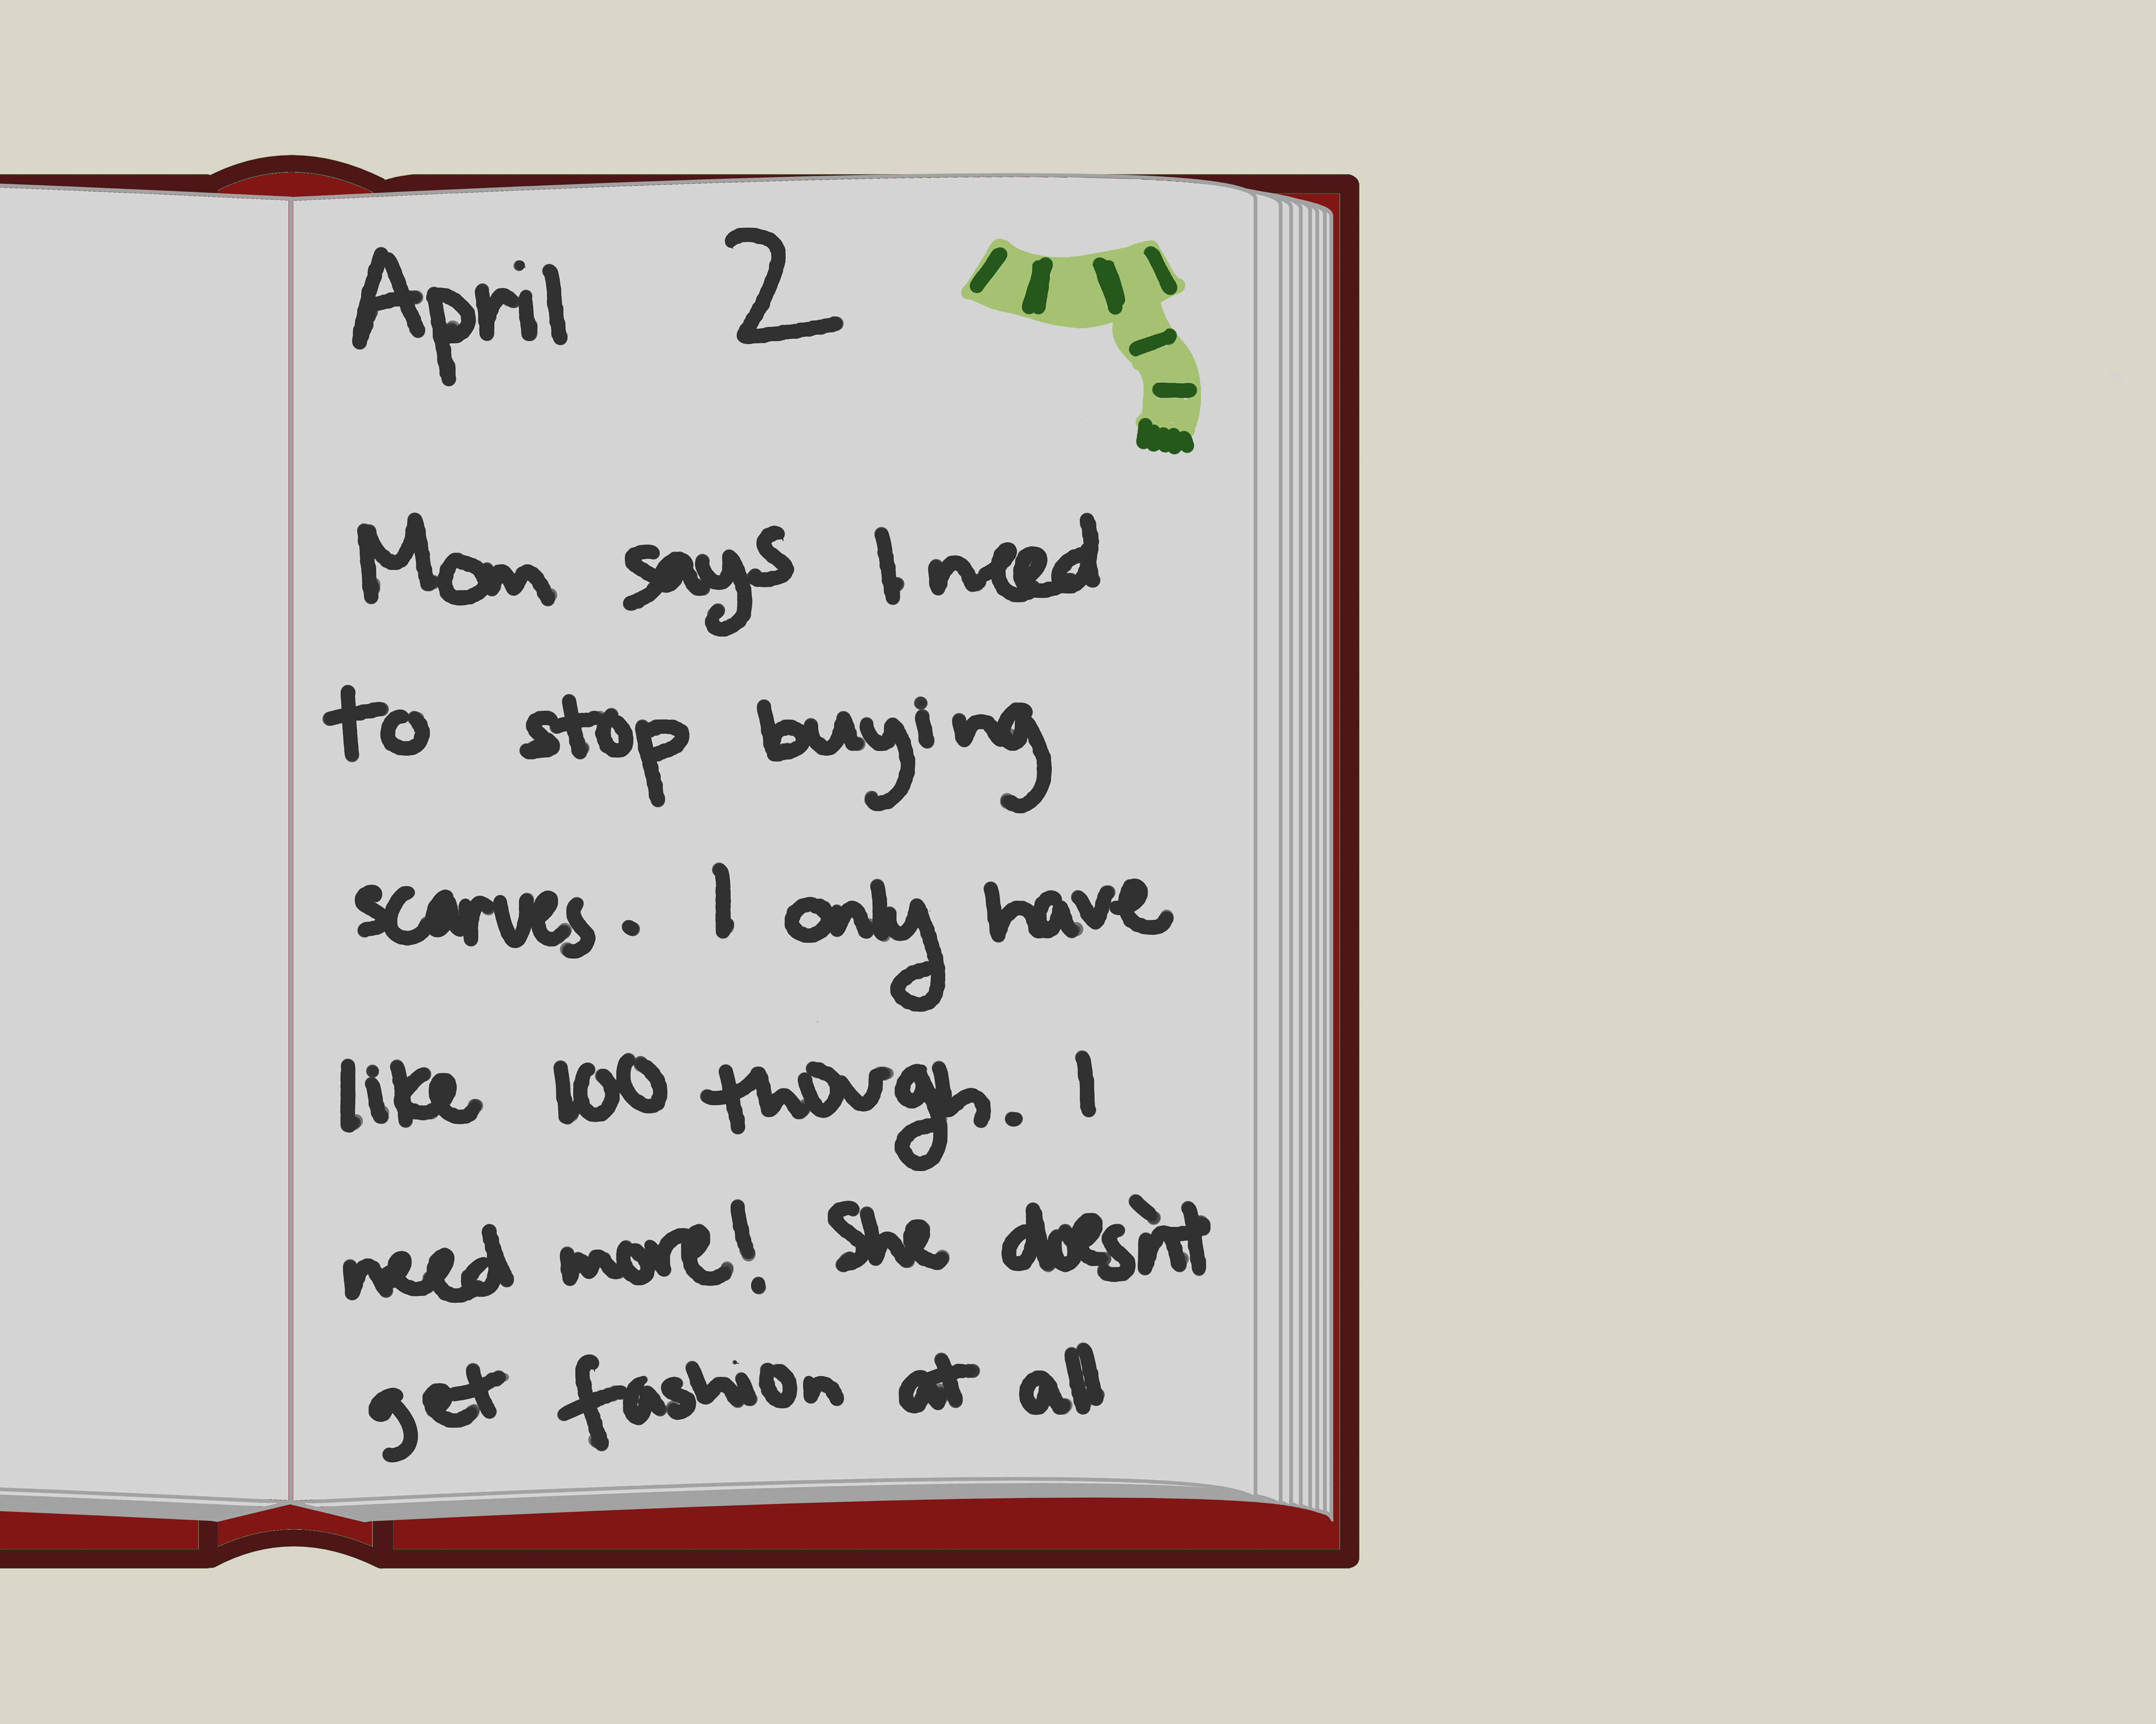 April 2
Mom says I need
to stop buying
scarves. I only have
like 100 though. I
need more! She doesn't
get fashion at all